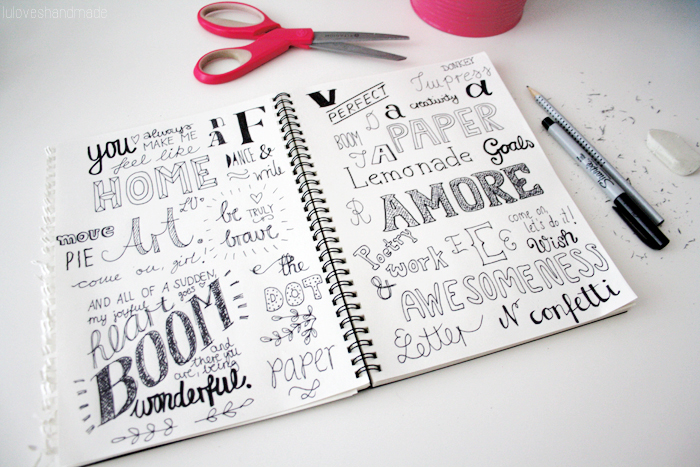 luloveshandmade
you always
MAKE ME
feel like
HOME
F
A
DANCE &
write
move
PIE
Art.
be
TRULY
brave
come on, girl!
AND ALL OF A SUDDEN,
my joyful goes
heart
BOOM
and
there you
are, being
wonderful.
e the
DOT
paper
V
PERFECT
DONKEY
Impress
creativity
a
a
BOOM
D
A
PAPER
Lemonade
Goals
R
AMORE
Poetry
& work
E E e
come on,
let's do it!
Wish
AWESOMENESS
Letter
N
confetti
Sharpie